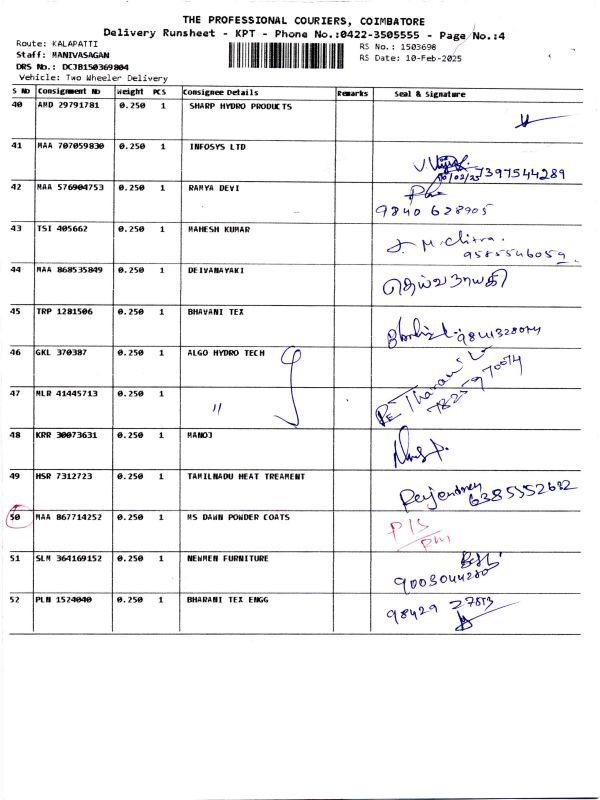 THE PROFESSIONAL COURIERS, COIMBATORE
Delivery Runsheet - KPT - Phone No.:0422-3505555 - Page No.:4
Route: KALAPATTI
Staff: MANIVASAGAN
DRS No.: DCJB150369804
Vehicle: Two Wheeler Delivery
RS No.: 1503698
RS Date: 10-Feb-2025
S No Consignment No Weight PCS Consignee Details Remarks Seal & Signature
40 AMD 29791781 0.250 1 SHARP HYDRO PRODUCTS
41 MAA 707059830 0.250 1 INFOSYS LTD
10/02/25 7397544289
42 MAA 576904753 0.250 1 RAMYA DEVI
9840 628905
43 TSI 405662 0.250 1 MAHESH KUMAR J. M. Chitra.
9585546059.
44 MAA 868535849 0.250 1 DEIVANAYAKI தெய்வநாயகி
45 TRP 1281506 0.250 1 BHAVANI TEX
46 GKL 370387 0.250 1 ALGO HYDRO TECH
47 MLR 41445713 0.250 1 "
7825970074
48 KRR 30073631 0.250 1 MANOJ
49 HSR 7312723 0.250 1 TAMILNADU HEAT TREAMENT
Rajendren 6385552682
50 MAA 867714252 0.250 1 MS DAWN POWDER COATS P/S
pm
51 SLM 364169152 0.250 1 NEWMEN FURNITURE
9003044280
52 PLN 1524040 0.250 1 BHARANI TEX ENGG
98429